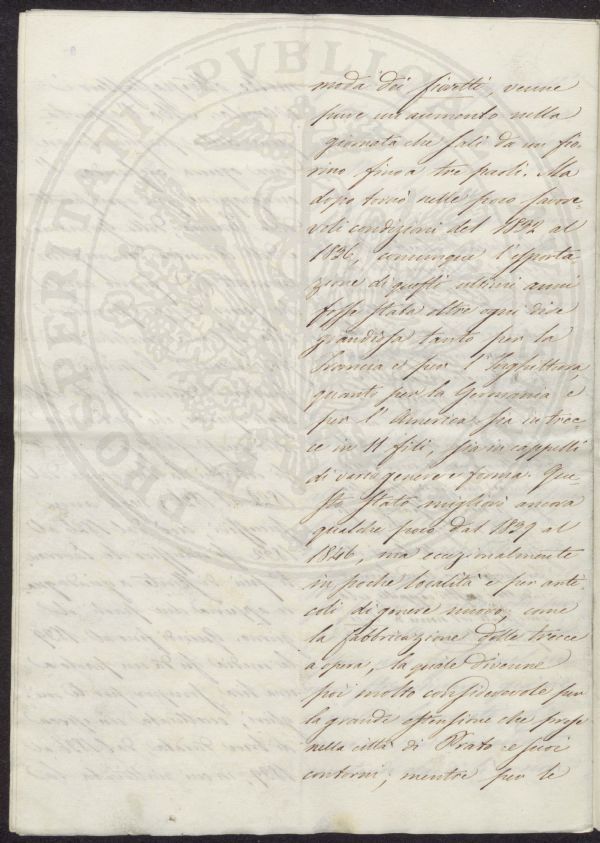 moda dei fioretti, venne
pure un aumento nella
giornata che salì da un fio-
rino fino a tre paoli. Ma
dopo tornò nelle poco favore-
voli condizioni del 1832 al
1836, comunque l'esporta-
zione di questi ultimi anni
fosse stata oltre ogni dire
grandissa tanto per la
Francia e per l'Inghilterra,
quanto per la Germania e
per l'America, sia in trec-
ce in 11 fili, sia in cappelli
di vario genere e forma. Que-
sto stato migliorò ancora
qualche poco dal 1839 al
1846, ma eccezionalmente
in poche località e per arti-
coli di genere nuovo, come
la fabbricazione delle trecce
a opera, la quale divenne
poi molto considerevole per
la grande estensione che prese
nella città di Prato e suoi
contorni; mentre per le
PROSPERITATI PUBLICAE